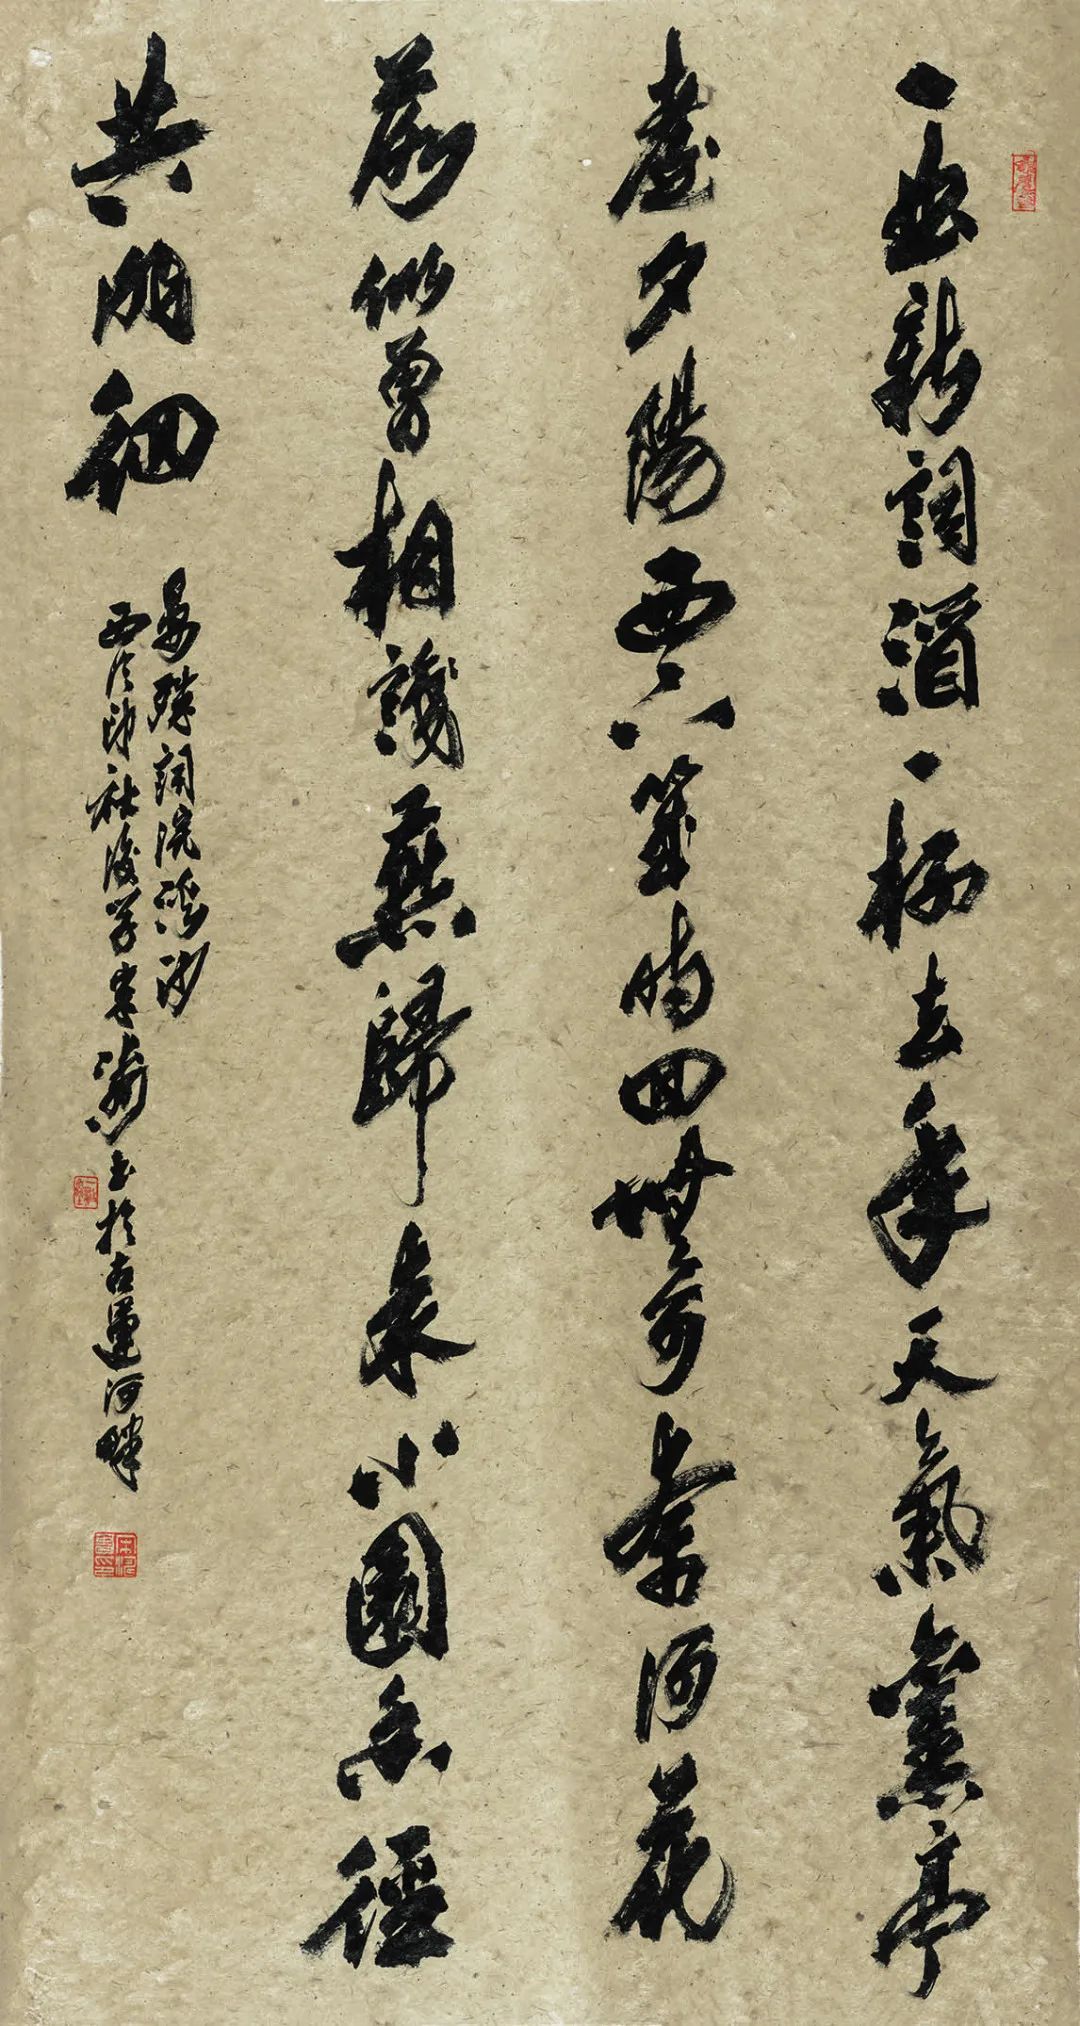 一曲新詞酒一杯去年天氣亭
臺夕陽西下幾時回無可奈何花
落似曾相識燕歸來小園香徑
共徊
晏殊詞浣溪沙
西泠印社後學書於古運河畔